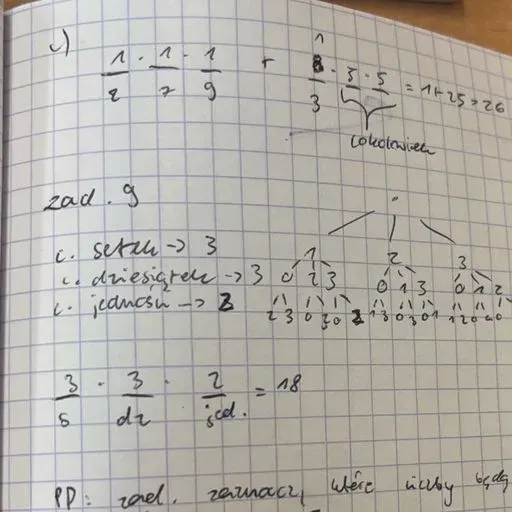 c)
1/2 · 1/7 · 1/9 + 1/3 · 5 · 5 = 1 + 25 = 26
cokolwiek
zad. 9
c. setek -> 3
c. dziesiątek -> 3
c. jedności -> 2
1 2 3
0 2 3 0 1 3 0 1 2
3/s · 3/dz · 2/jed. = 18
PD: zad. zaznacz, które liczby będą